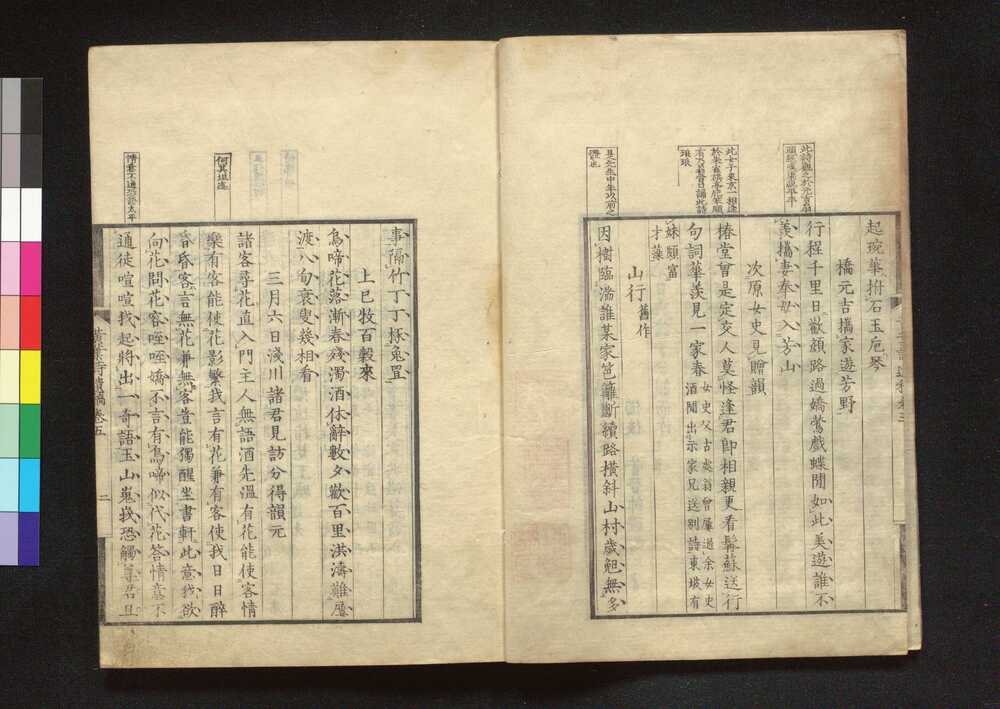 起琬華拊石玉卮琴
橋元吉攜家遊芳野
行程千里日歡顔路過嬌鶯戲蝶間如此美遊誰不
羨攜妻奉母入芳山
次原女史見贈韻
椿堂曾是定交人莫怪逢君即相親更看髯蘇送行
句詞華羨見一家春
女史父古處翁曾屢過余女史
酒間出示家兄送別詩東坡有
妹頗富
才藻
山行舊作
因樹臨湍誰某家笆籬斷續路橫斜山村歲尅無多
此女子來京一相逢
琅琅
是先生中年以前之
事隔竹丁丁椓兔罝
上巳牧百穀來
鳥啼花落漸春殘濁酒休辭數夕歡百里洪濤難屢
渡八旬衰叟幾相看
三月六日淺川諸君見訪分得韻元
諸客尋花直入門主人無語酒先溫有花能使客情
樂有客能使花影繁我言有花兼有客使我日日醉
昏昏客言無花兼無客豈能獨醒坐書軒此意我欲
向花問花容咥咥嬌不言有鳥啼似代花答情意不
通徒喧喧我起將出一奇語玉山嵬峩恐觸尊君且
何其坦率
情意不通恐證太平
黃葉夕陽村舍詩遺稿卷五
二